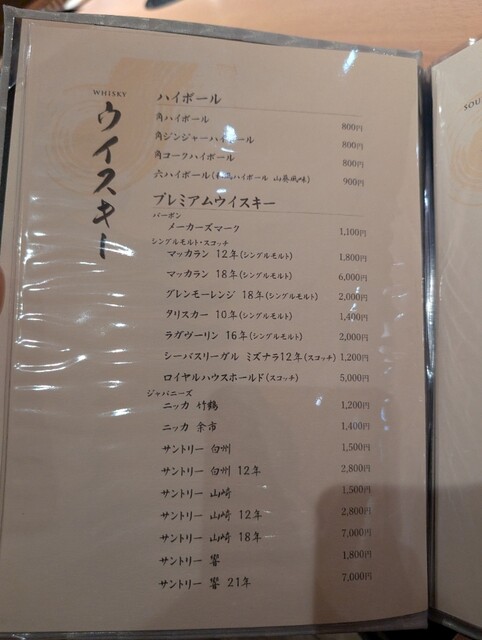 WHISKY
ウイスキー
ハイボール
角ハイボール 800円
角ジンジャーハイボール 800円
角コークハイボール 800円
六ハイボール(ハイボール 山椒風味) 900円
プレミアムウイスキー
バーボン
メーカーズマーク 1,100円
シングルモルト・スコッチ
マッカラン 12年(シングルモルト) 1,800円
マッカラン 18年(シングルモルト) 6,000円
グレンモーレンジ 18年(シングルモルト) 2,000円
タリスカー 10年(シングルモルト) 1,400円
ラガヴーリン 16年(シングルモルト) 2,000円
シーバスリーガル ミズナラ12年(スコッチ) 1,200円
ロイヤルハウスホールド(スコッチ) 5,000円
ジャパニーズ
ニッカ 竹鶴 1,200円
ニッカ 余市 1,400円
サントリー 白州 1,500円
サントリー 白州 12年 2,800円
サントリー 山崎 1,500円
サントリー 山崎 12年 2,800円
サントリー 山崎 18年 7,000円
サントリー 響 1,800円
サントリー 響 21年 7,000円
SOU